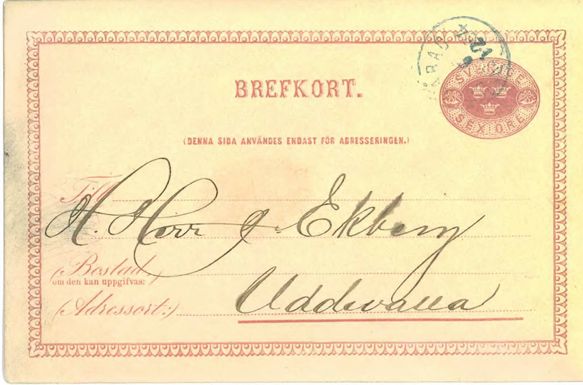 SVERIGE
SEX ÖRE
BREFKORT.
(DENNA SIDA ANVÄNDES ENDAST FÖR ADRESSERINGEN.)
Till
H. Herr J. Ekberg
(Bostad)
om den kan uppgifvas:
Uddevalla
(Adressort:)